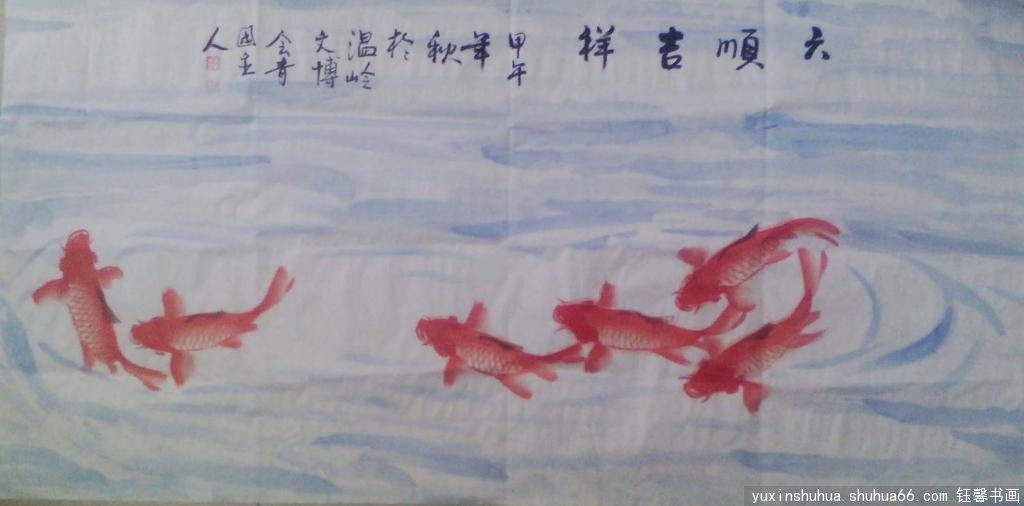 六順吉祥
甲午
年
秋
於
温岭
文博
会青
人
yuxinshuhua.shuhua66.com 钰馨书画